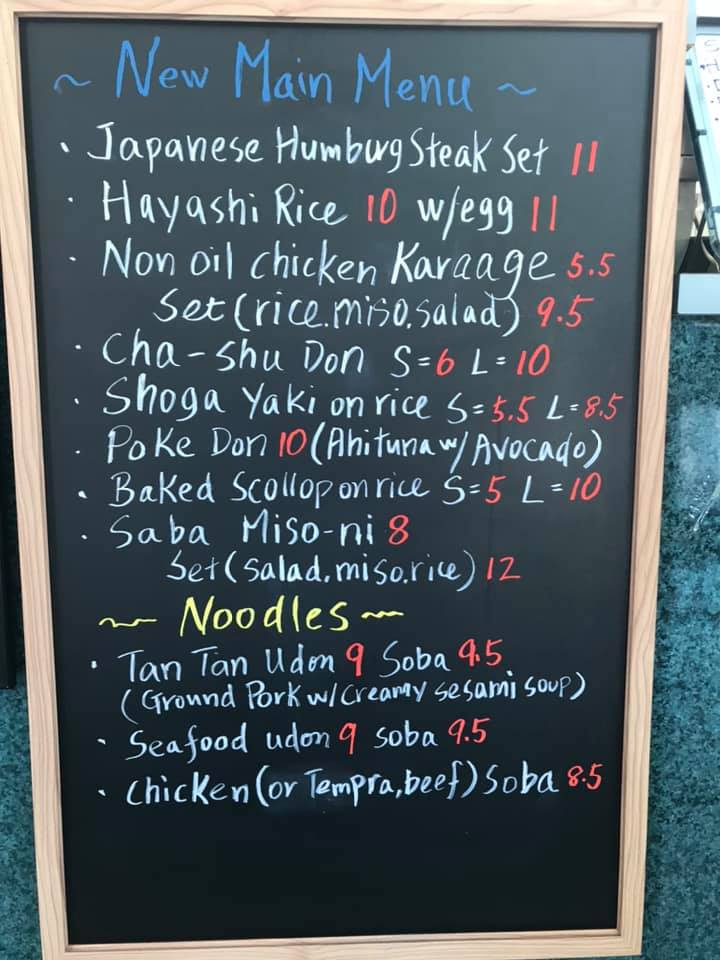 ~ New Main Menu ~
· Japanese Humburg Steak Set 11
· Hayashi Rice 10 w/egg 11
· Non oil chicken Karaage 5.5
Set (rice.miso.salad) 9.5
· Cha-shu Don S=6 L=10
· Shoga Yaki on rice S=5.5 L=8.5
· Poke Don 10 (Ahituna w/ Avocado)
· Baked Scollop on rice S=5 L=10
· Saba Miso-ni 8
Set (salad.miso.rice) 12
~ Noodles ~
· Tan Tan Udon 9 Soba 9.5
(Ground Pork w/ creamy sesami soup)
· Seafood udon 9 soba 9.5
· chicken (or Tempra, beef) Soba 8.5